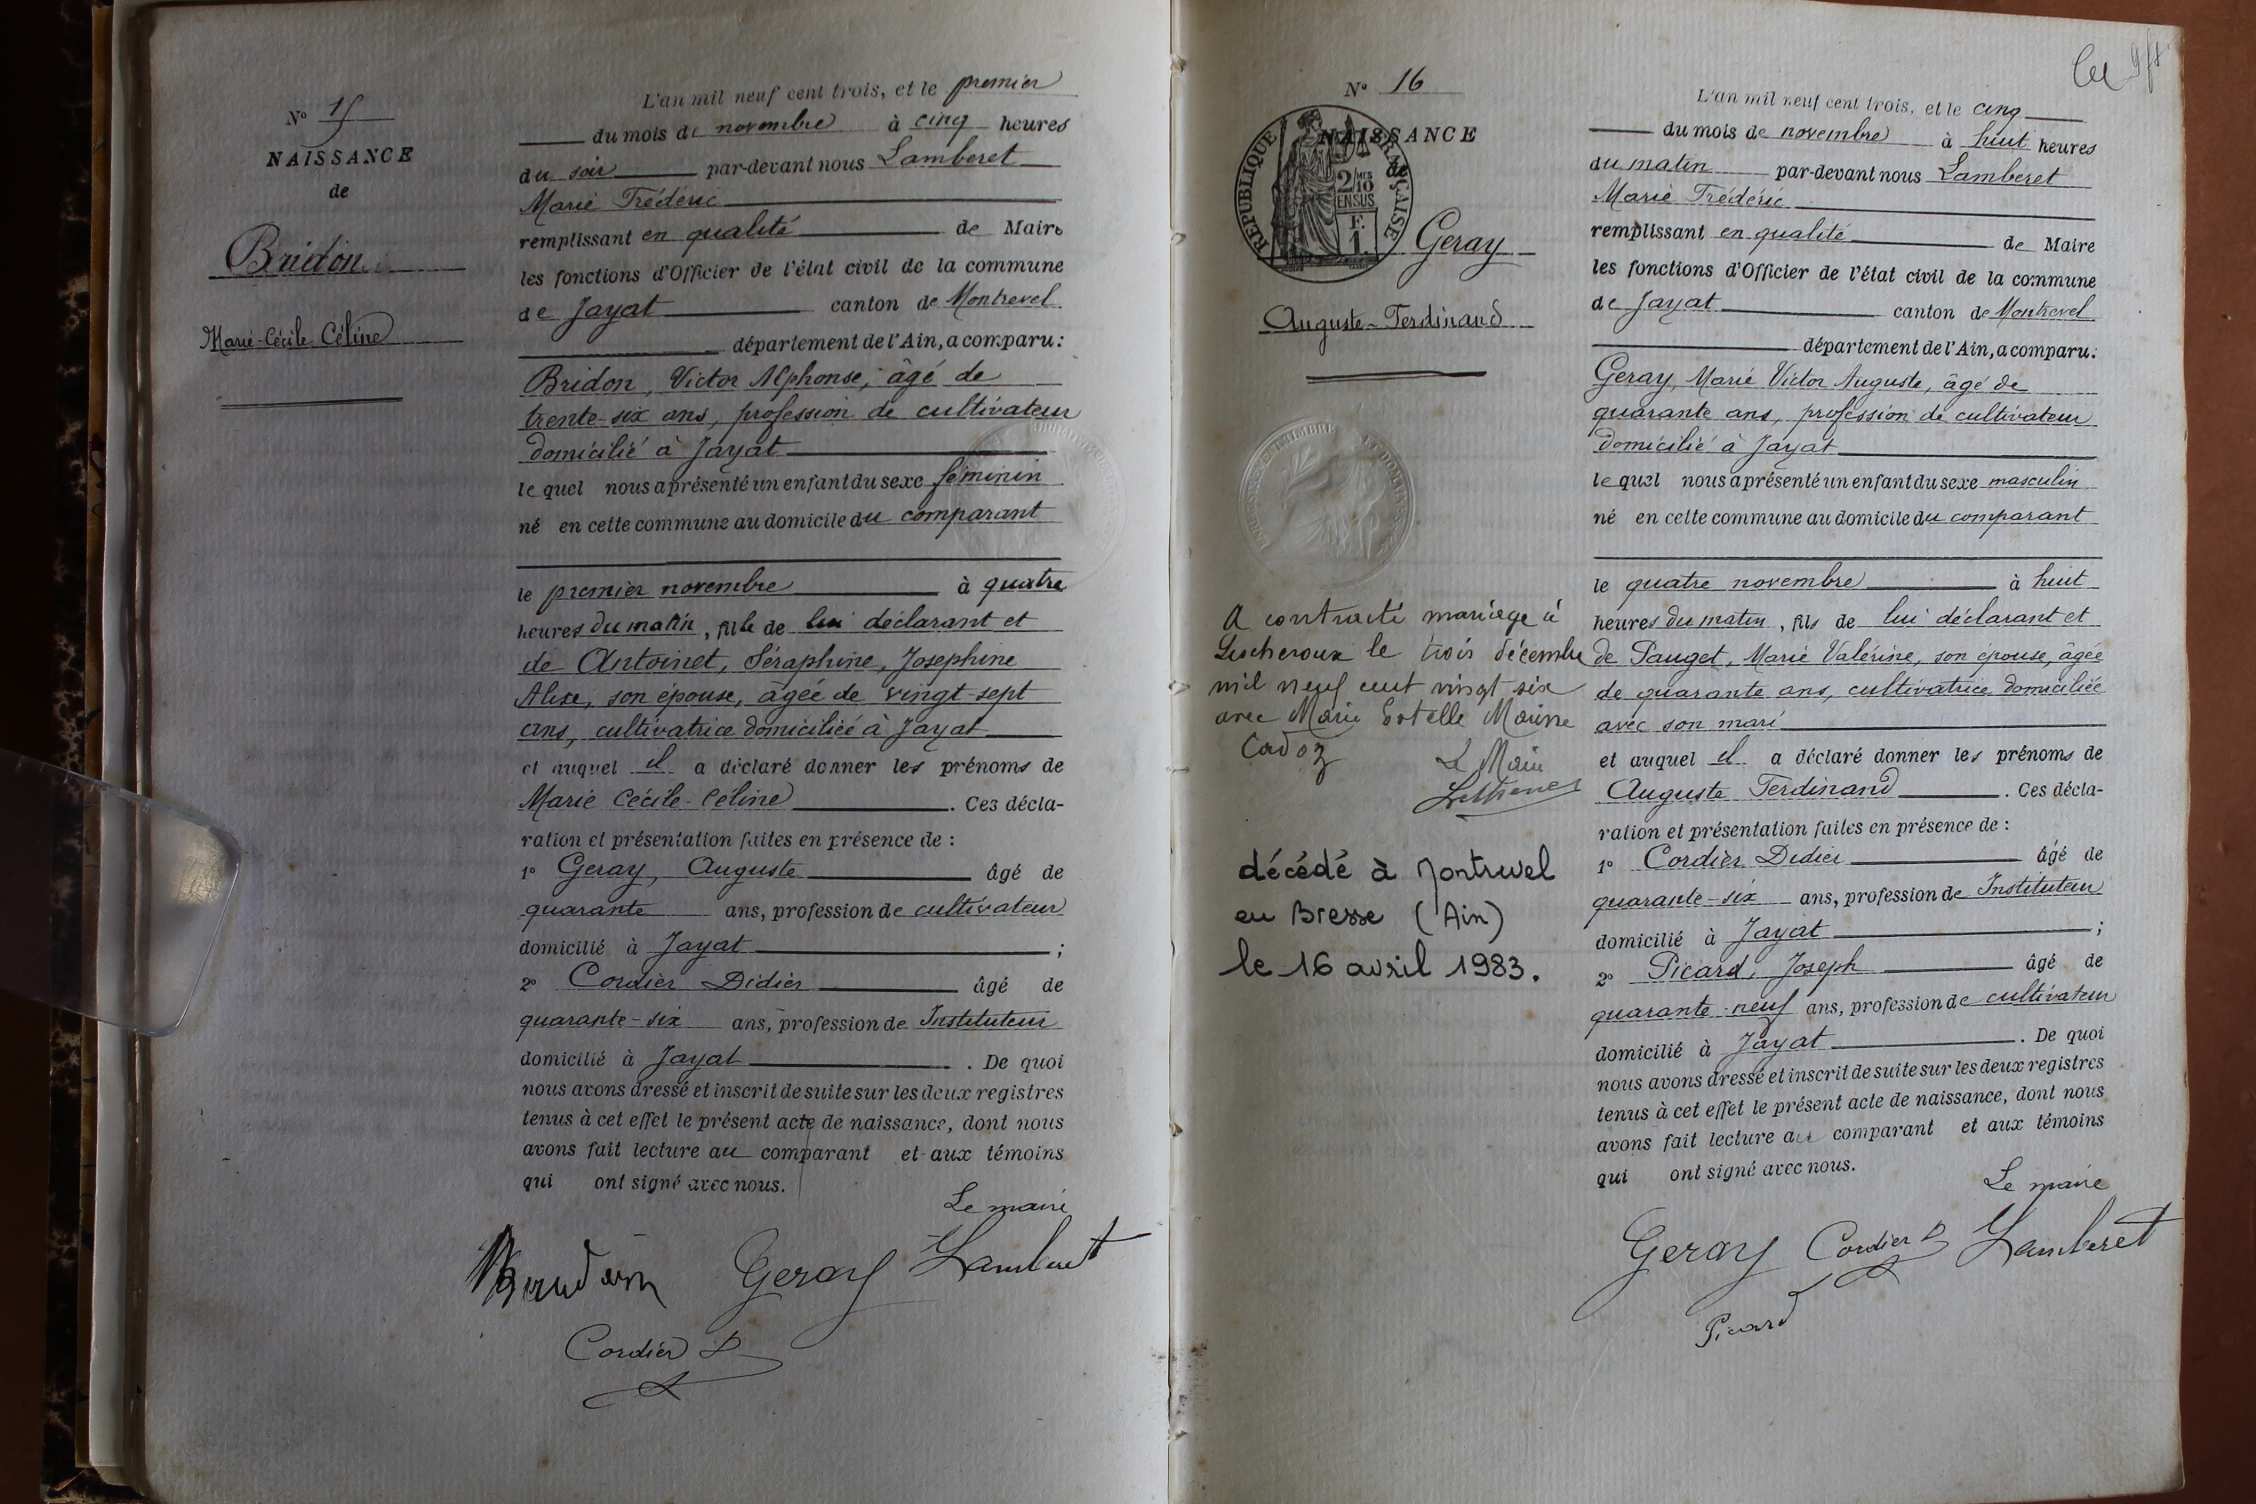 N° 15
NAISSANCE
de
Bridon
Marie-Cécile Céline
L'an mil neuf cent trois, et le premier
du mois de novembre à cinq heures
du soir par-devant nous Lamberet
Marie Frédéric
remplissant en qualité de Maire
les fonctions d'Officier de l'état civil de la commune
de Jayat canton de Montrevel
département de l'Ain, a comparu:
Bridon, Victor Alphonse, âgé de
trente-six ans, profession de cultivateur
domicilié à Jayat
le quel nous a présenté un enfant du sexe féminin
né en cette commune au domicile du comparant
le premier novembre à quatre
heures du matin, fille de lui déclarant et
de Antoinet, Séraphine, Josephine
Alixe, son épouse, âgée de vingt-sept
ans, cultivatrice domiciliée à Jayat
et auquel il a déclaré donner les prénoms de
Marie Cécile-Céline. Ces décla-
ration et présentation faites en présence de :
1° Geray, Auguste âgé de
quarante ans, profession de cultivateur
domicilié à Jayat ;
2° Cordier Didier âgé de
quarante-six ans, profession de Instituteur
domicilié à Jayat. De quoi
nous avons dressé et inscrit de suite sur les deux registres
tenus à cet effet le présent acte de naissance, dont nous
avons fait lecture au comparant et aux témoins
qui ont signé avec nous.
Le maire
Geray Lamberet
Cordier D
lu
N° 16
NAISSANCE
de
REPUBLIQUE FRANÇAISE
2/10
EN SUS
F.
1.
Geray
Auguste-Ferdinand
A contracté mariage à
Lescheroux le trois décembre
mil neuf cent vingt six
avec Marie Estelle
Cadoz
Le Maire
décédé à Montrevel
en Bresse (Ain)
le 16 avril 1983.
L'an mil neuf cent trois, et le cinq
du mois de novembre à huit heures
du matin par-devant nous Lamberet
Marie Frédéric
remplissant en qualité de Maire
les fonctions d'Officier de l'état civil de la commune
de Jayat canton de Montrevel
département de l'Ain, a comparu:
Geray, Marie Victor Auguste, âgé de
quarante ans, profession de cultivateur
domicilié à Jayat
le quel nous a présenté un enfant du sexe masculin
né en cette commune au domicile du comparant
le quatre novembre à huit
heures du matin, fils de lui déclarant et
de Pauget, Marie Valérine, son épouse, âgée
de quarante ans, cultivatrice domiciliée
avec son mari
et auquel il a déclaré donner les prénoms de
Auguste Ferdinand. Ces décla-
ration et présentation faites en présence de :
1° Cordier Didier âgé de
quarante-six ans, profession de Instituteur
domicilié à Jayat ;
2° Picard, Joseph âgé de
quarante-neuf ans, profession de cultivateur
domicilié à Jayat. De quoi
nous avons dressé et inscrit de suite sur les deux registres
tenus à cet effet le présent acte de naissance, dont nous
avons fait lecture au comparant et aux témoins
qui ont signé avec nous.
Le maire
Geray Cordier D Lamberet
Picard